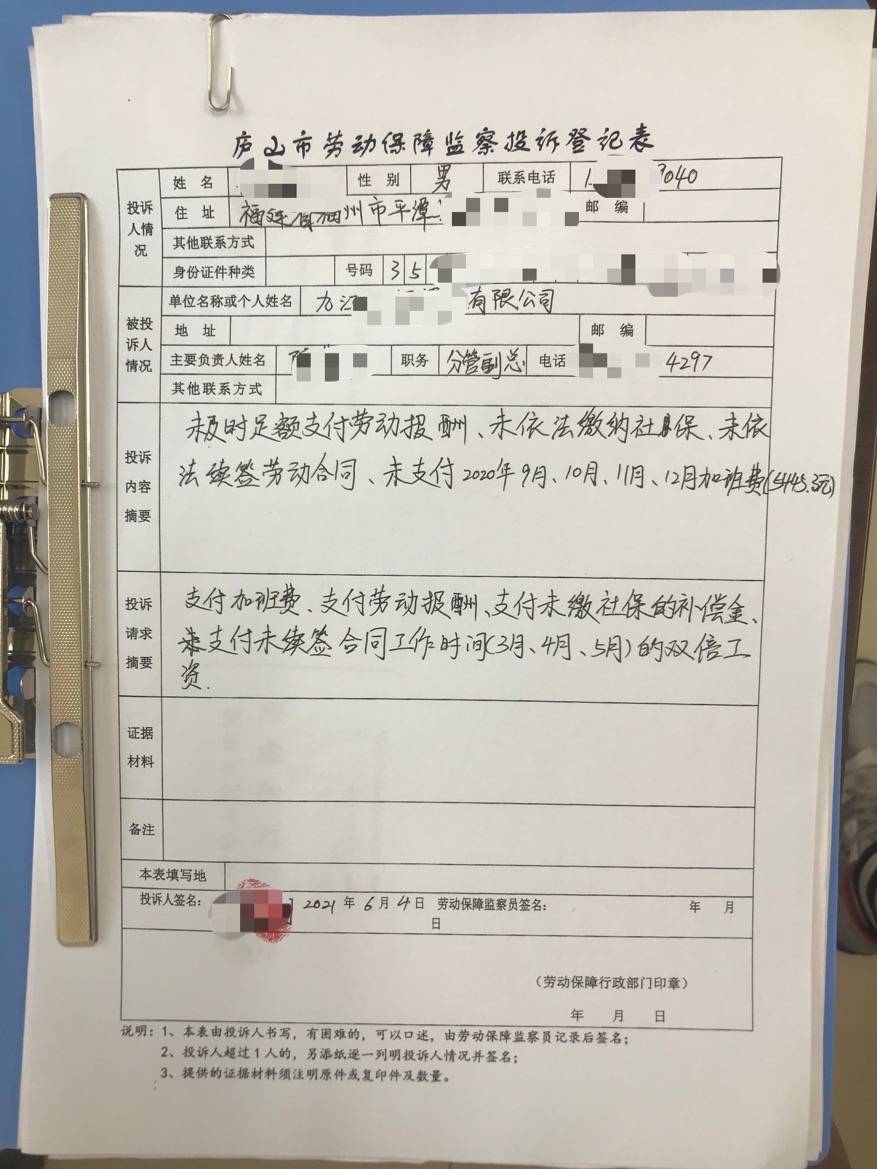 庐山市劳动保障监察投诉登记表
投诉人情况
姓 名 性 别 男 联系电话 1 3040
住 址 福建省 州市平潭 邮 编
其他联系方式
身份证件种类 号码 3 5
被投诉人情况
单位名称或个人姓名 九江 有限公司
地 址 邮 编
主要负责人姓名 职务 分管副总 电话 4297
其他联系方式
投诉内容摘要
未及时足额支付劳动报酬、未依法缴纳社保、未依
法续签劳动合同、未支付2020年9月、10月、11月、12月加班费(5445.3元)
投诉请求摘要
支付加班费、支付劳动报酬、支付未缴社保的补偿金、
支付未续签合同工作时间(3月、4月、5月)的双倍工
资.
证据材料
备注
本表填写地
投诉人签名: 2021年6月4日 劳动保障监察员签名: 年 月
日
(劳动保障行政部门印章)
年 月 日
说明:1、本表由投诉人书写,有困难的,可以口述,由劳动保障监察员记录后签名;
2、投诉人超过1人的,另添纸逐一列明投诉人情况并签名;
3、提供的证据材料须注明原件或复印件及数量。